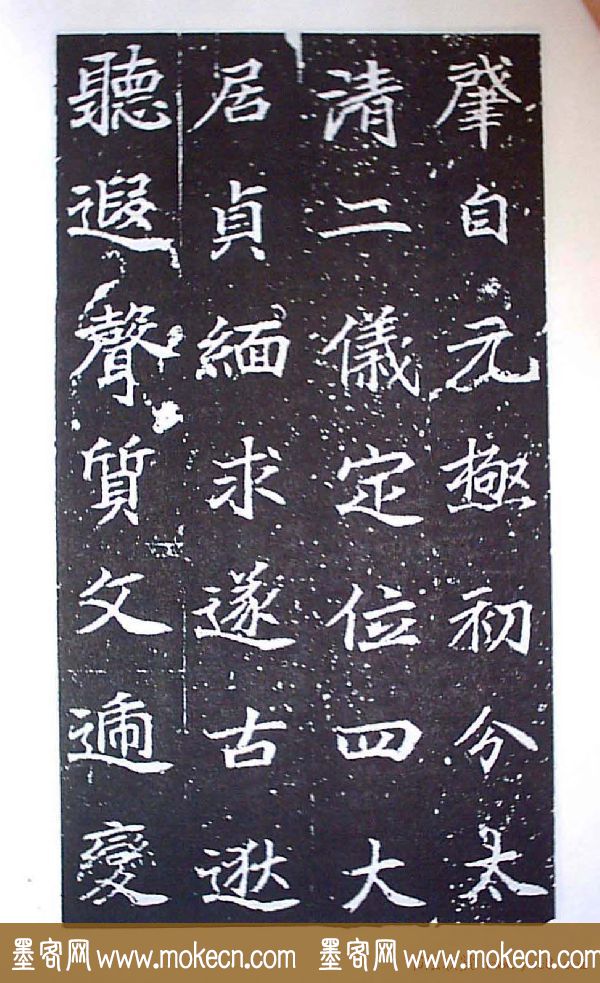 肇自元極初分太
清二儀定位四大
居貞緬求遂古逖
聽遐聲質文遞變
墨客网 www.mokecn.com 墨客网 www.mokecn.com